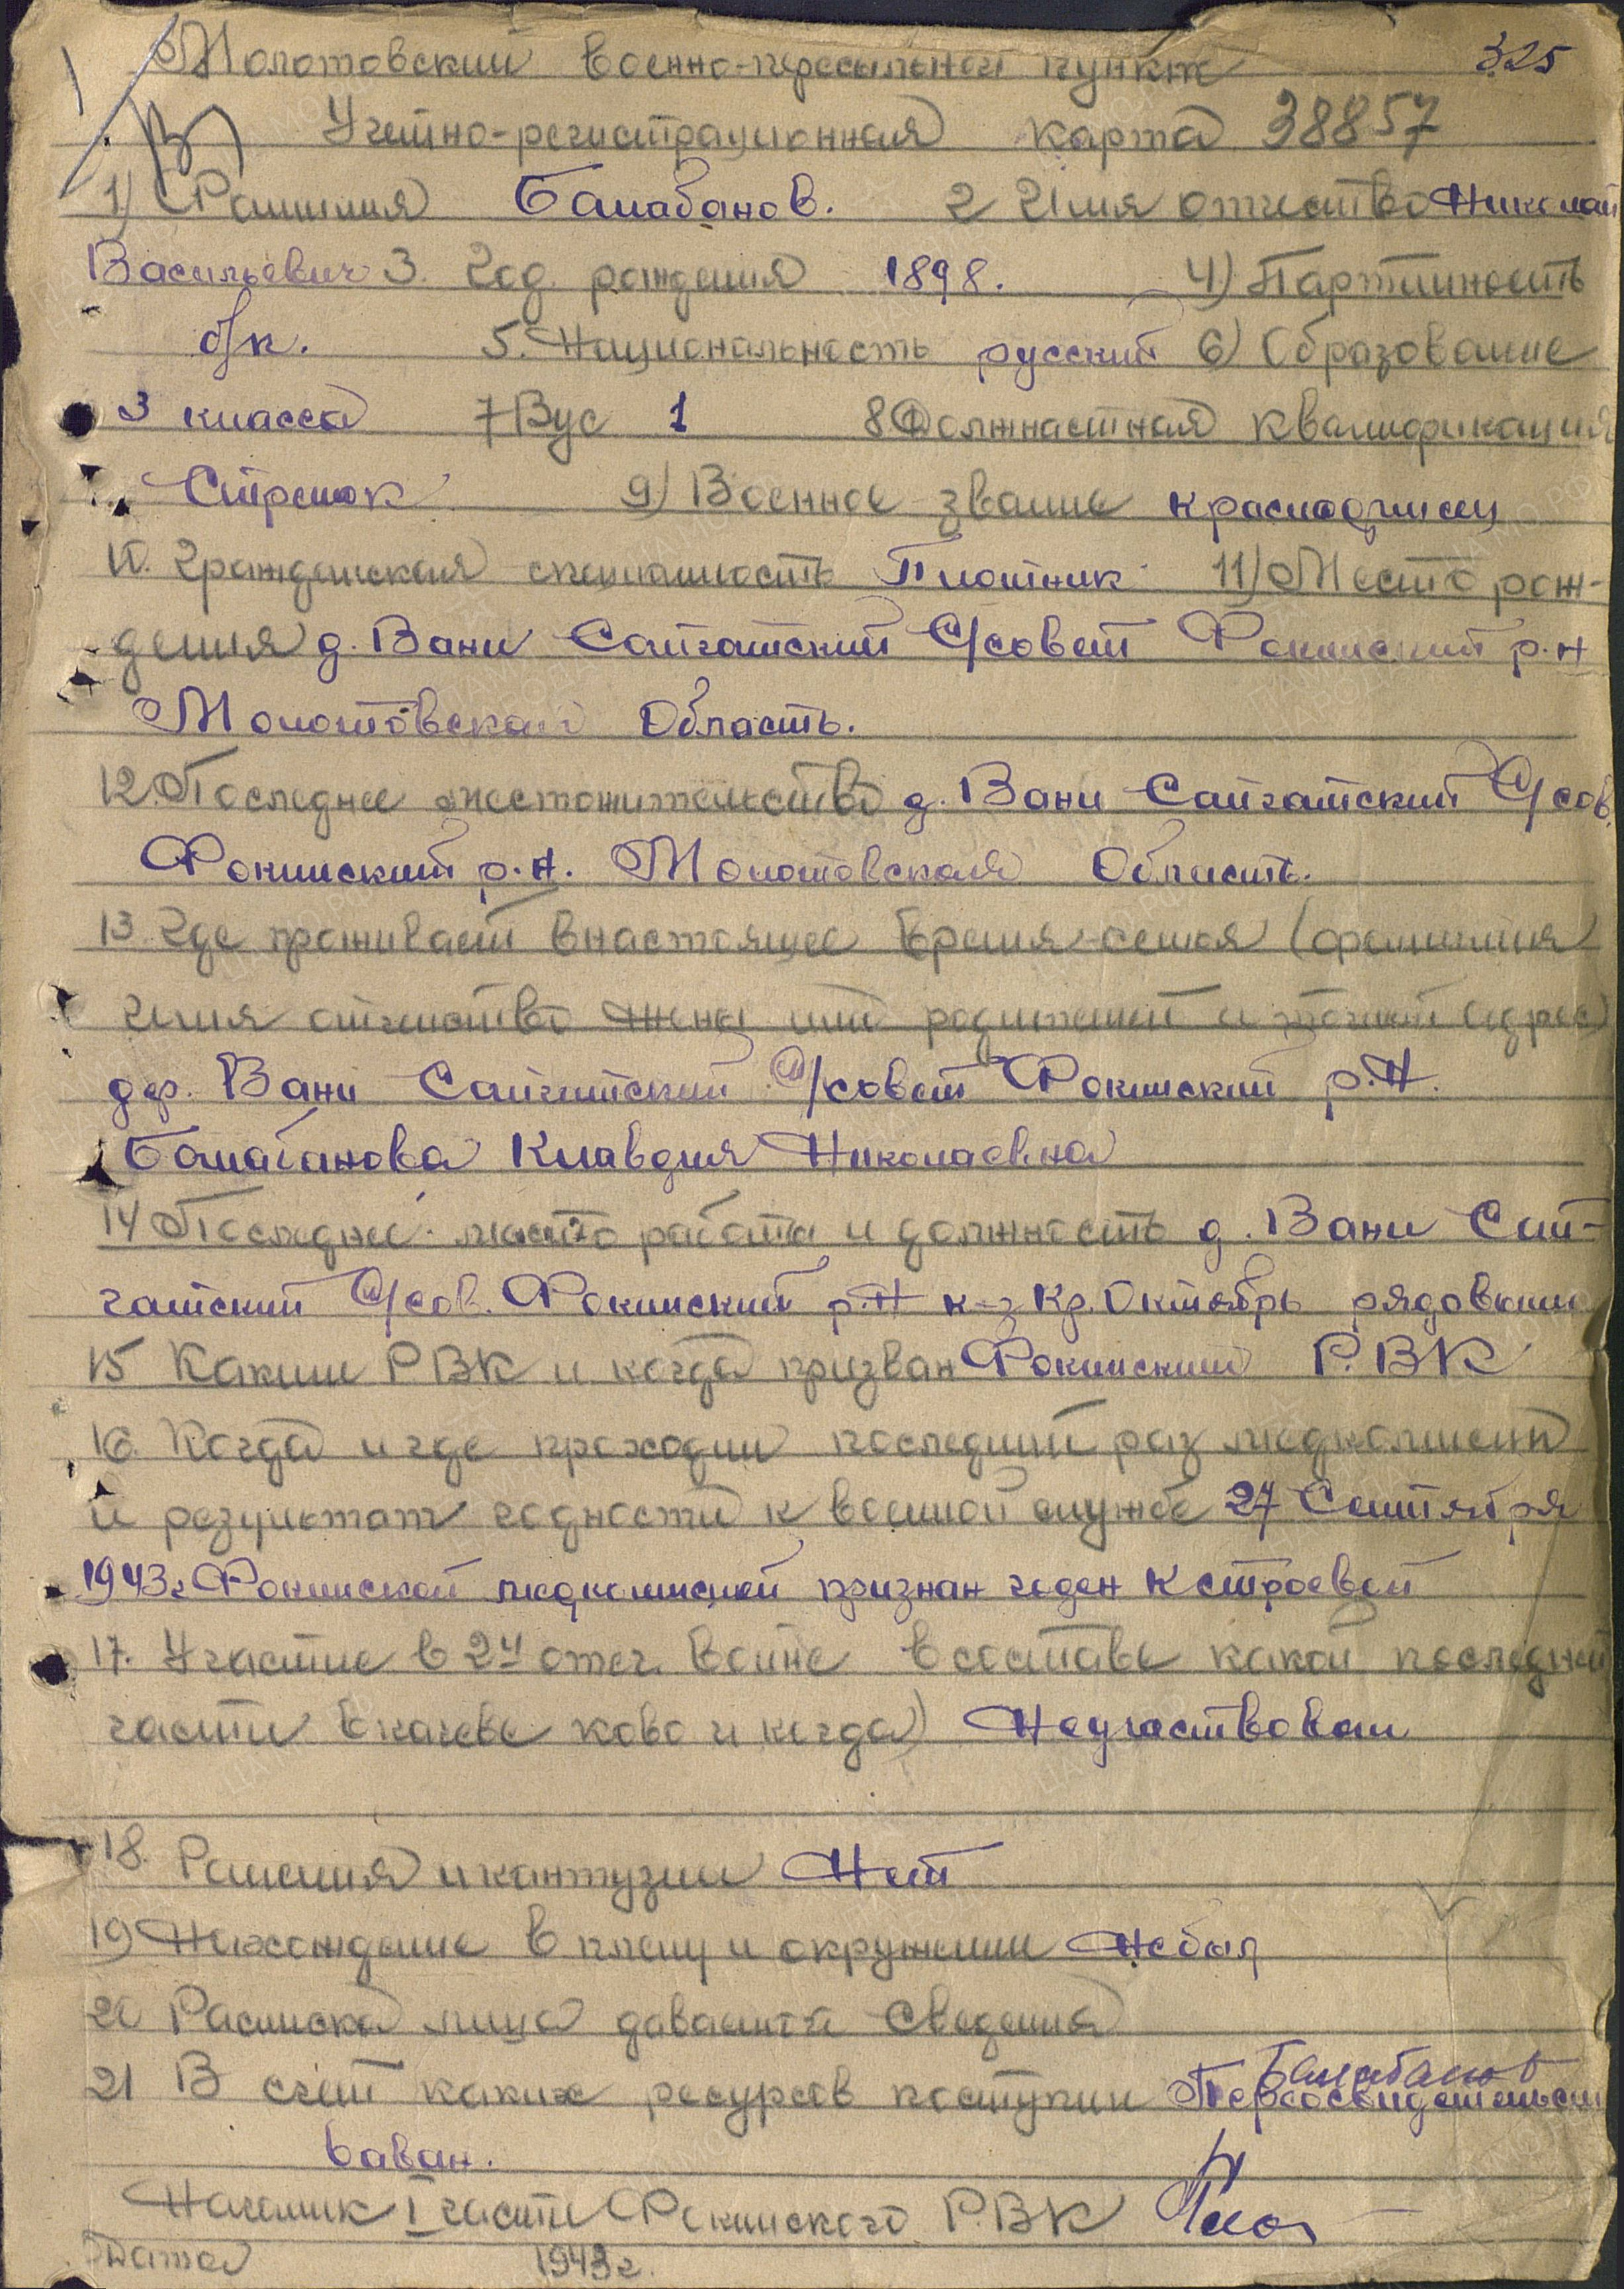 325
Молотовский военно-пересыльной пункт
Учетно-регистрационная карта 38857
1) Фамилия Балабанов. 2 Имя отчество Николай
Васильевич 3. Год рождения 1898. 4) Партийность
б/п. 5. Национальность русский 6) Образование
3 класса 7 Вус 1 8 Должностная квалификация
Стрелок 9) Военное звание красноармеец
10. Гражданская специальность Плотник 11) Место рож-
дения д. Вани Сайгатский С/совет Фокинский р-н
Молотовской Область.
12. Последнее местожительство д. Вани Сайгатский С/сов.
Фокинский р.н. Молотовская Область.
13. Где проживает в настоящее время семья (фамилия
имя отчество жены или родителей и точный адрес)
дер. Вани Сайгатский С/совет Фокинский р.н.
Балабанова Клавдия Николаевна
14 Последнее место работы и должность д. Вани Сай-
гатский С/сов. Фокинский р.н к-з Кр. Октябрь рядовым
15 Каким РВК и когда призван Фокинский Р.ВК
16. Когда и где проходил последний раз медкомисси
и результат годности к военной службе 27 Сентября
1943г Фокинской медкомиссией признан годен к строевой
17. Участие в 2й отеч. войне в составе какой последней
части в качеве ково и когда) Неучаствовал
18. Ранения и кантузии Нет
19 Нахождение в плену и окружении Небыл
20 Расписка лица даващей сведения
Балабанов
21 В счет каких ресурсов поступил Переосвидетельст
вован.
Началник I части Фокинского Р.ВК
Дата 1943г.